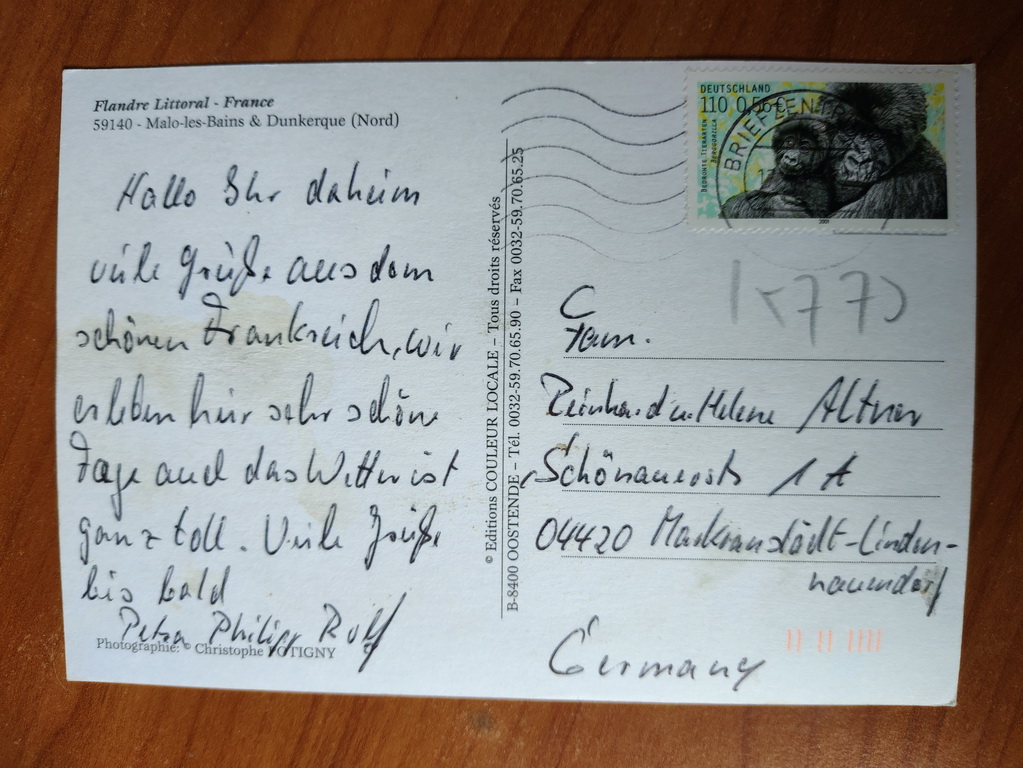 Flandre Littoral - France
59140 - Malo-les-Bains & Dunkerque (Nord)
Hallo Ihr daheim
viele Grüße aus dem
schönen Frankreich, wir
erleben hier sehr schöne
Tage und das Wetter ist
ganz toll. Viele Grüße
bis bald
Petra Philipp Rolf
Photographie: © Christophe POTIGNY
© Editions COULEUR LOCALE – Tous droits réservés
B-8400 OOSTENDE – Tél. 0032-59.70.65.90 – Fax 0032-59.70.65.25
DEUTSCHLAND
110 0,56€
BEDROHTE TIERARTEN
BERGGORILLA
2001
BRIEFZEN
Fam.
Reinhard u. Helene Altner
Schönauerstr 1A
04420 Markranstädt-Linden-
nauendorf
Germany